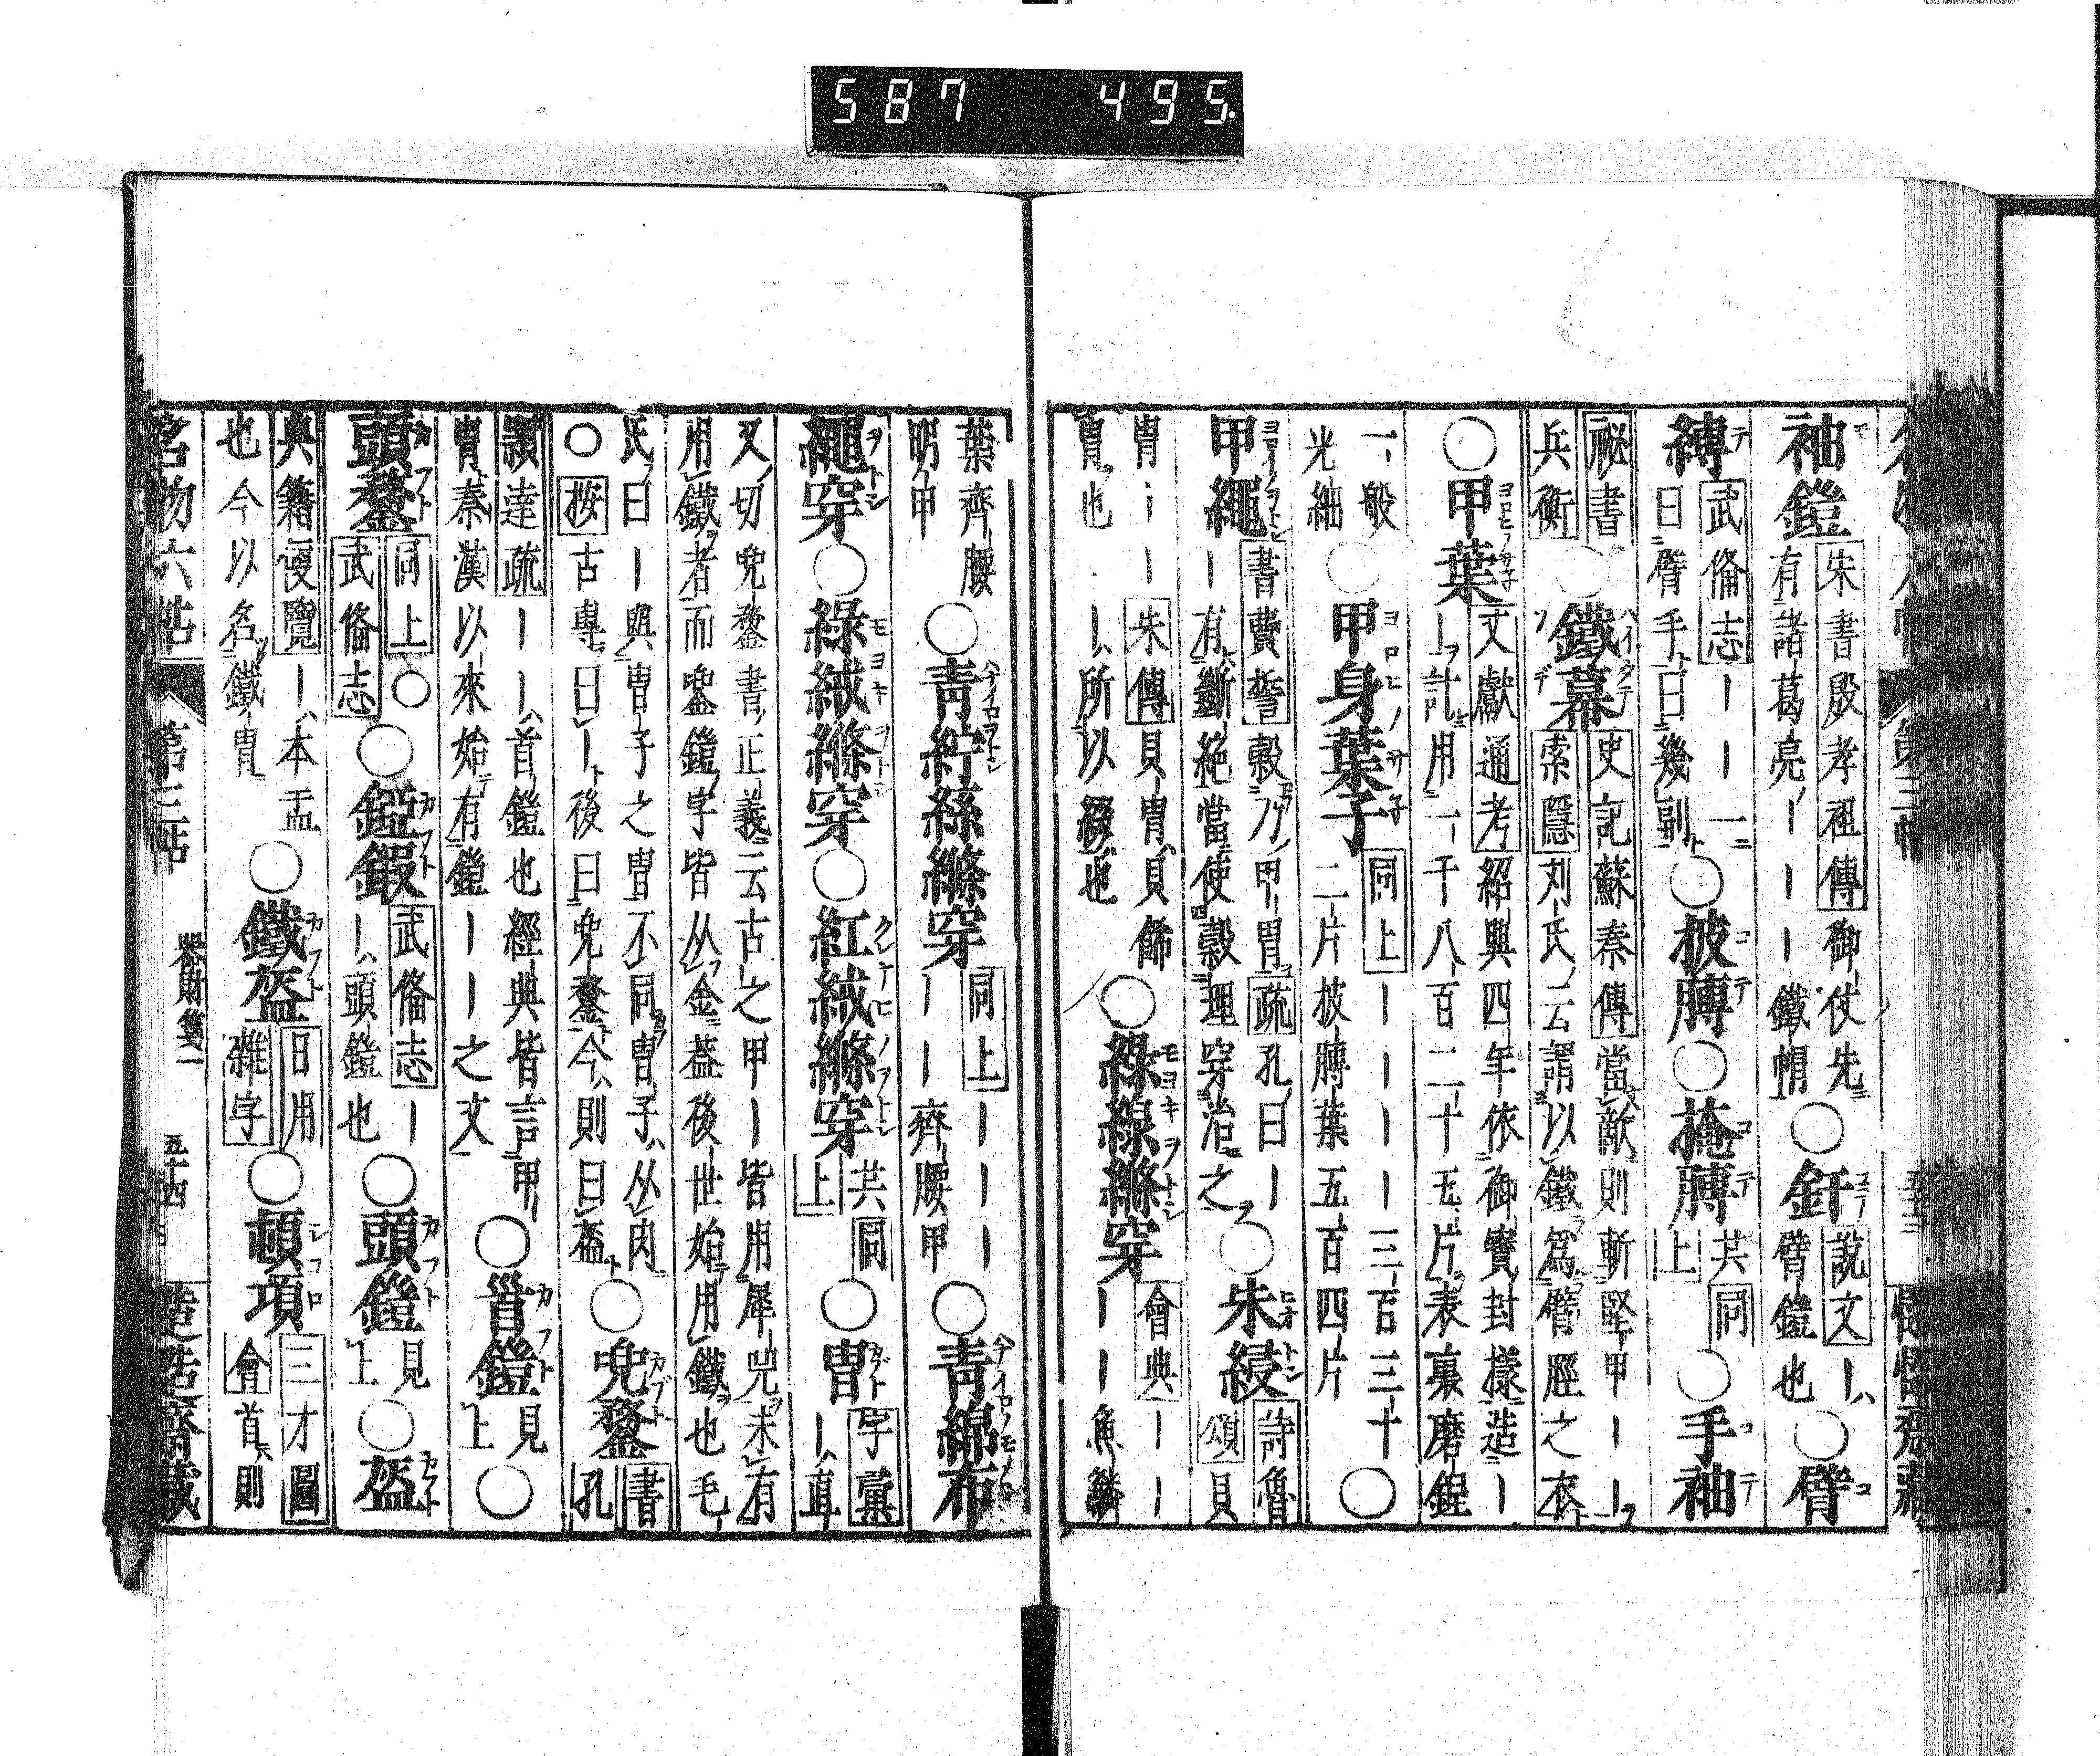 587 495
袖鎧 朱書殷孝祖傳 御仗先有諸葛亮ーー鐵帽 ○釬 説文ー臂鎧也 ○臂
縛 武備志ーー一曰臂手曰幾副 ○披膊 ○掩膊 共同上 ○手袖
祕書兵衡 ○鐵幕 史記蘇秦傳 當敵則斬堅甲ーー 索隱 刘氏云謂以鐵爲臂脛之衣
○甲葉 文獻通考 紹興四年依御寶封樣造ーー計用一千八百二十五片表裏磨鋥
一般光細 ○甲身葉子 同上ーーーー三百三十二片披膊葉五百四片 ○
甲繩 書費誓 榖乃甲冑 疏 孔曰ーー有斷絶當使榖理穿治之 ○朱綅 詩魯頌 貝
冑ーー 朱傳 貝冑貝飾冑也ーー所以綴也 ○綠線縧穿 會典ーーーー魚鱗
葉齊腰明甲 ○青紵絲縧穿 同上ーーーーー齊腰甲 ○青綿布
繩穿 ○綠絨縧穿 ○紅絨縧穿 共同上 ○冑 字彙ー直
又切兜鍪書正義云古之甲ー皆用犀兕未有用鐵者而鍪鎧字皆从金葢後世始用鐵也毛
氏曰ー與冑子之冑不同冑子从肉 ○按古專曰ー後曰兜鍪今則曰盔 ○兜鍪 書孔
頴達疏ーー首鎧也經典皆言甲冑秦漢以來始有鎧ーー之文 ○首鎧 見上 ○
頭鍪 同上○武備志 ○錏鍜 武備志ーー頭鎧也 ○頭鎧 見上 ○盔
典籍便覽ー本盂也今以名鐵冑 ○鐵盔 日用雜字 ○頓項 三才圖會 首則
名物六帖 第三帖 器財箋二 五十四